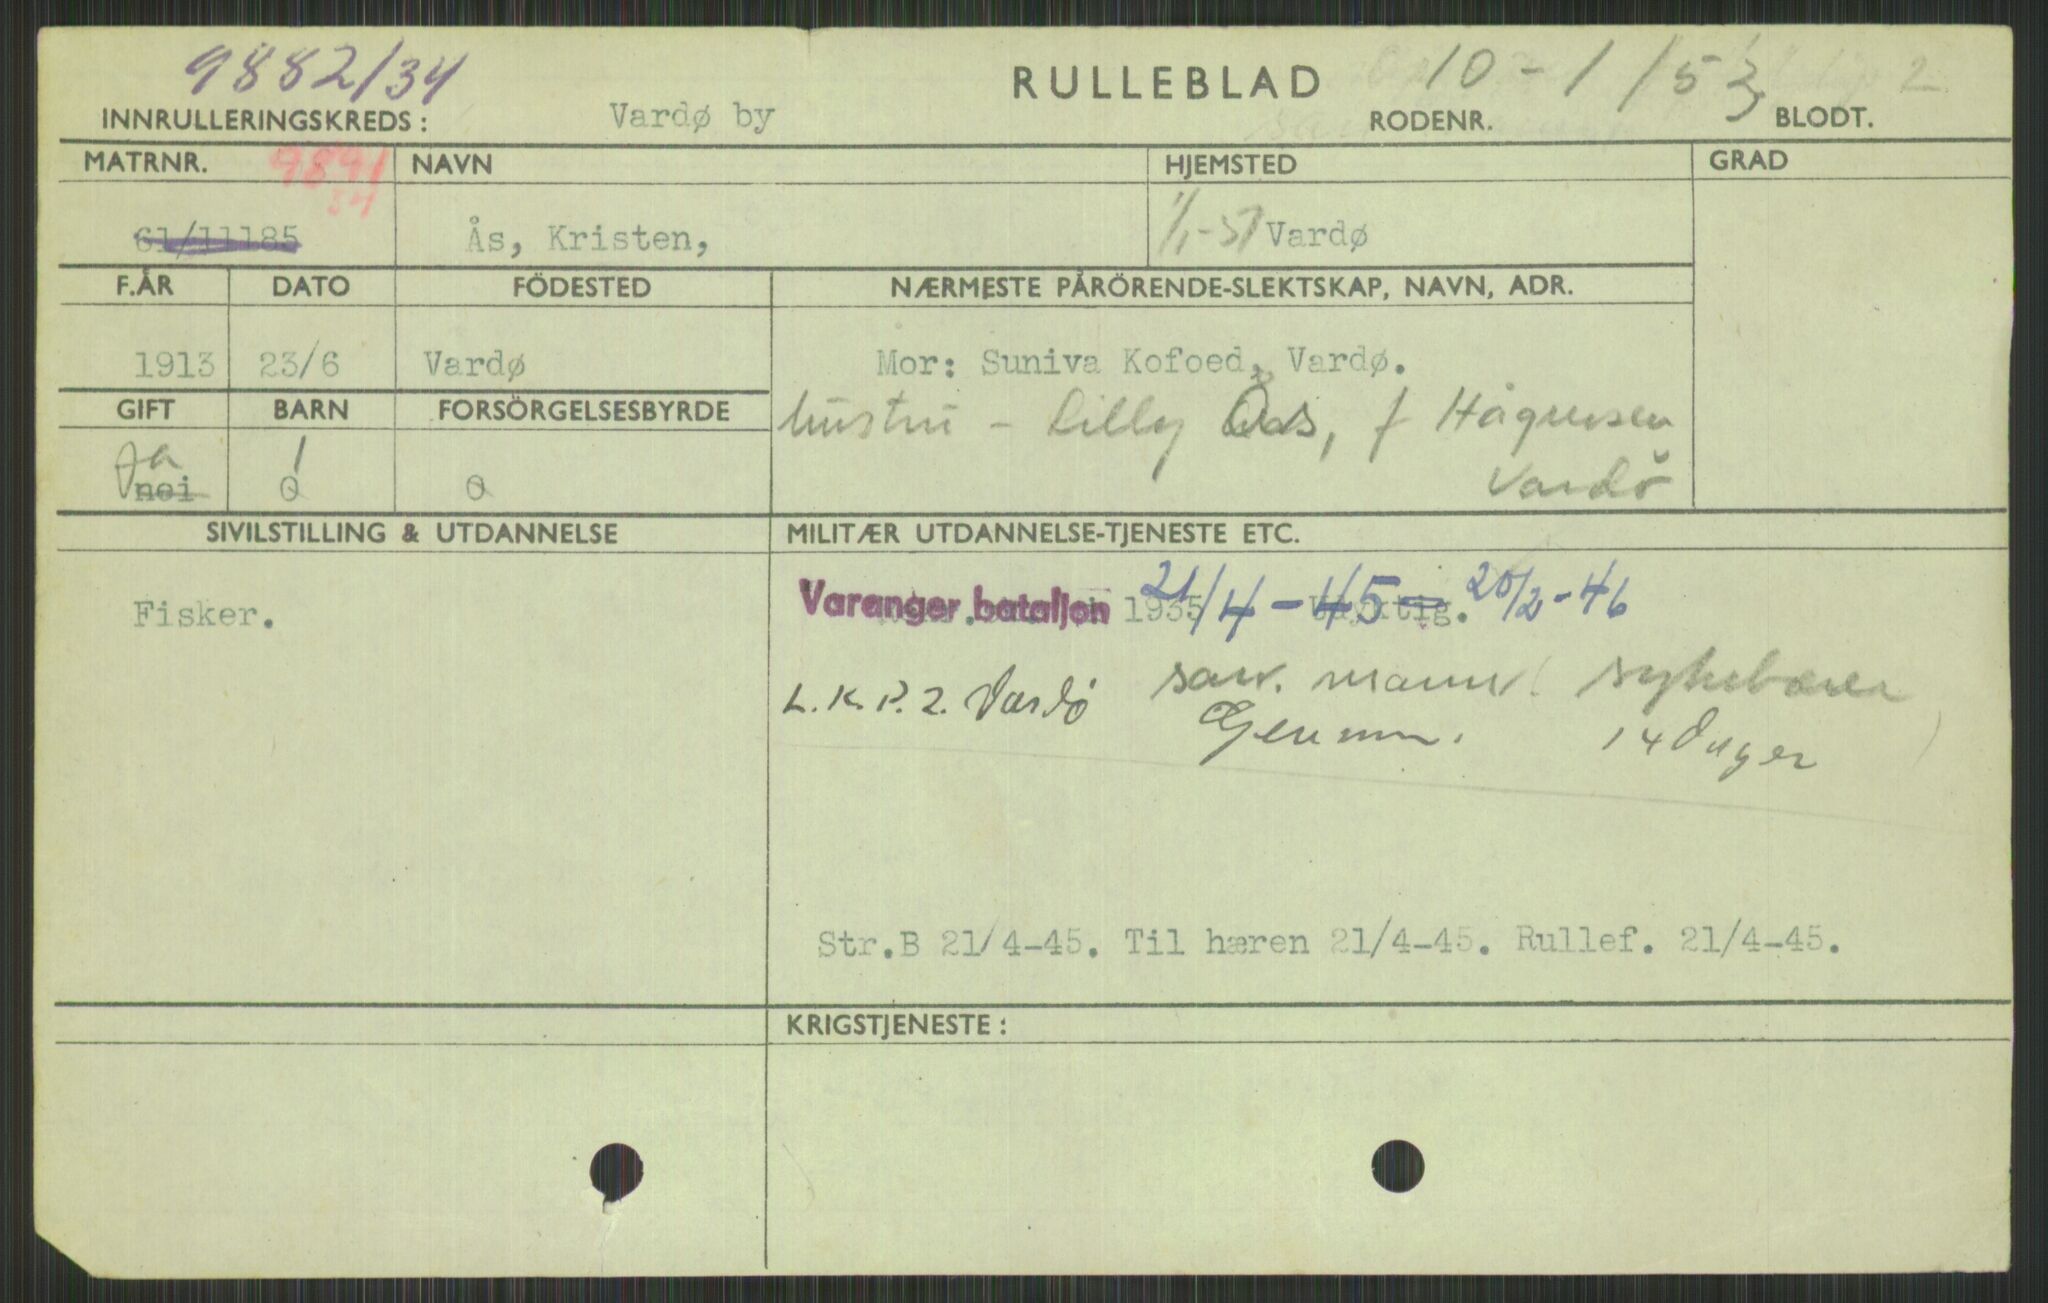 9882/34
RULLEBLAD 10-1/53 2
INNRULLERINGSKREDS: Vardø by RODENR. BLODT.
MATRNR. 9891 34 NAVN HJEMSTED GRAD
61/11185 Ås, Kristen, 1/1-57 Vardø
F.ÅR DATO FÖDESTED NÆRMESTE PÅRÖRENDE-SLEKTSKAP, NAVN, ADR.
1913 23/6 Vardø Mor: Suniva Kofoed, Vardø.
GIFT BARN FORSÖRGELSESBYRDE hustru - Lilly Ås, f Hågensen
Ja 1 Vardö
nei 0 0
SIVILSTILLING & UTDANNELSE MILITÆR UTDANNELSE-TJENESTE ETC.
Fisker. Varanger bataljon 1935 21/4-45 - Udyktig. 20/2-46
L.K.P. 2. Vardö san. mann. sykebærer
Gjenn. 14 Dager
Str.B 21/4-45. Til hæren 21/4-45. Rullef. 21/4-45.
KRIGSTJENESTE: